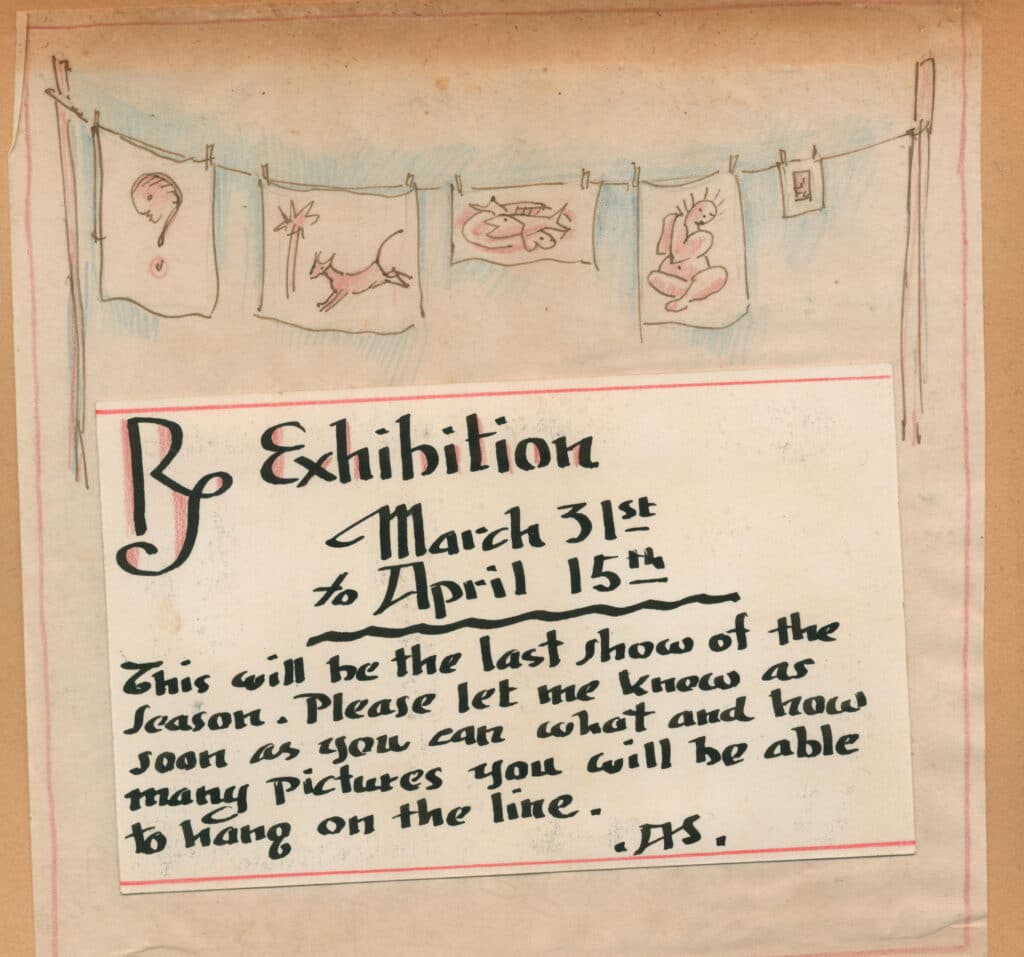 Rx Exhibition
March 31st
to April 15th
This will be the last show of the
season. Please let me know as
soon as you can what and how
many pictures you will be able
to hang on the line.
.AS.